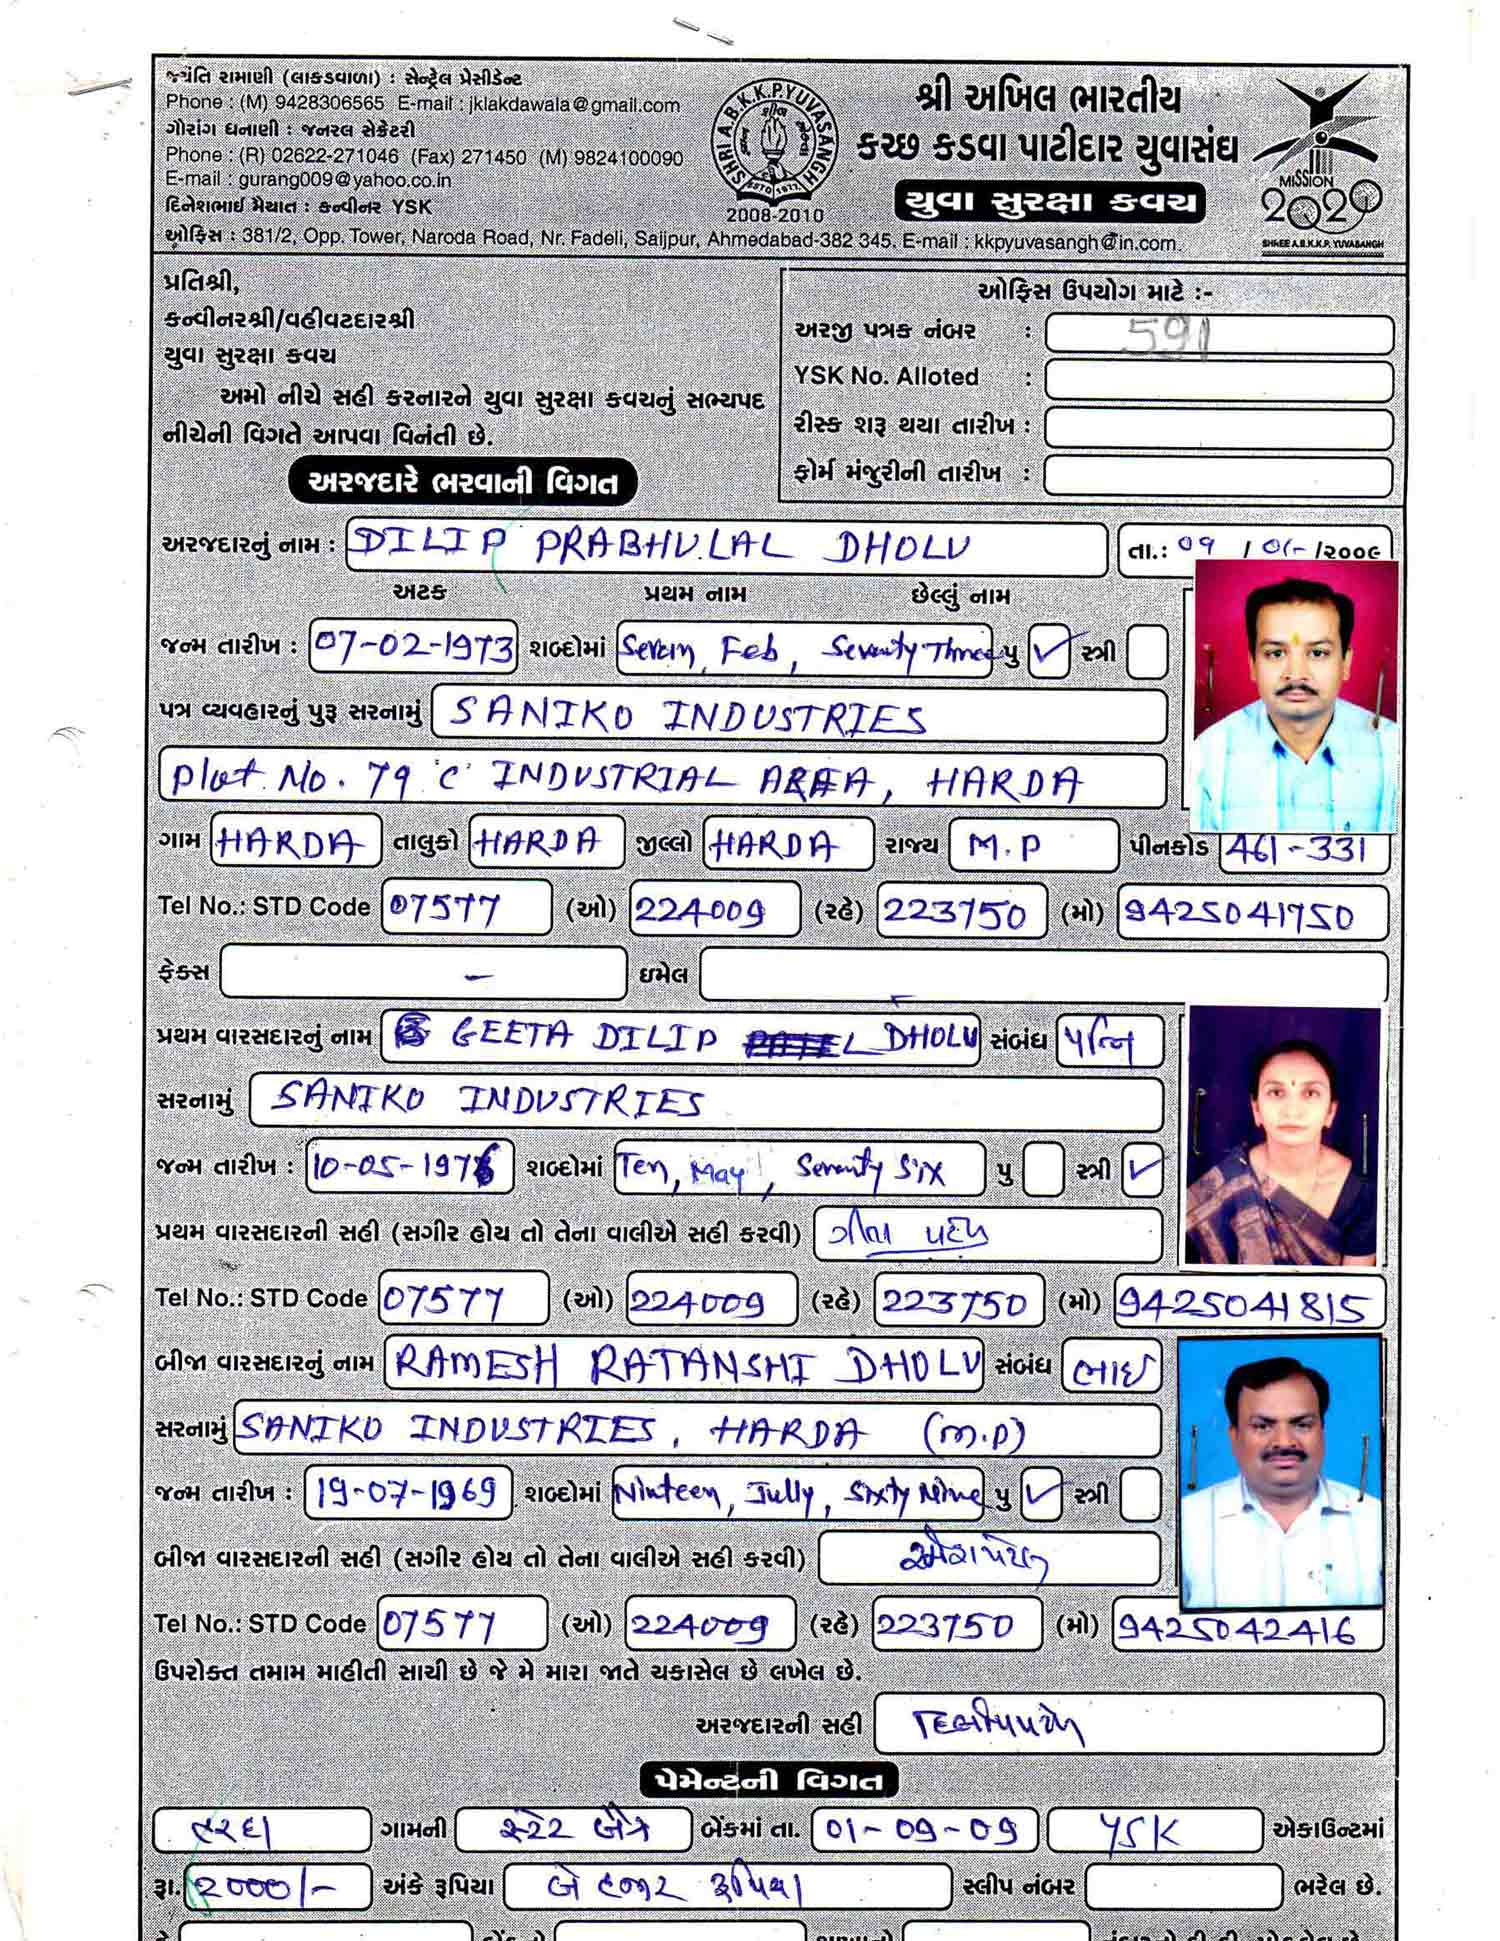 જયંતિ રામાણી (લાકડાવાળા) : સેન્ટ્રલ પ્રેસીડેન્ટ
Phone : (M) 9428306565 E-mail : jklakdawala@gmail.com
ગૌરાંગ ધનાણી : જનરલ સેક્રેટરી
Phone : (R) 02622-271046 (Fax) 271450 (M) 9824100090
E-mail : gurang009@yahoo.co.in
દિનેશભાઈ મૈયાત : કન્વીનર YSK
SHRI A.B.K.K.P. YUVASANGH
ESTD 1977
2008-2010
શ્રી અખિલ ભારતીય
કચ્છ કડવા પાટીદાર યુવાસંઘ
યુવા સુરક્ષા કવચ
MISSION
2020
SHREE A.B.K.K.P. YUVASANGH
ઓફિસ : 381/2, Opp. Tower, Naroda Road, Nr. Fadeli, Saijpur, Ahmedabad-382 345. E-mail : kkpyuvasangh@in.com.
પ્રતિશ્રી,
કન્વીનરશ્રી/વહીવટદારશ્રી
યુવા સુરક્ષા કવચ
અમો નીચે સહી કરનારને યુવા સુરક્ષા કવચનું સભ્યપદ
નીચેની વિગતે આપવા વિનંતી છે.
ઓફિસ ઉપયોગ માટે :-
અરજી પત્રક નંબર : 591
YSK No. Alloted :
રીસ્ક શરૂ થયા તારીખ :
ફોર્મ મંજુરીની તારીખ :
અરજદારે ભરવાની વિગત
અરજદારનું નામ : DILIP PRABHULAL DHOLU તા.: 09 / 01- /૨૦૦૯
અટક પ્રથમ નામ છેલ્લું નામ
જન્મ તારીખ : 07-02-1973 શબ્દોમાં Sevan, Feb, Seventy Three પુ ✓ સ્ત્રી
પત્ર વ્યવહારનું પુરૂ સરનામું SANIKO INDUSTRIES
Plot No. 79 'C' INDUSTRIAL AREA, HARDA
ગામ HARDA તાલુકો HARDA જીલ્લો HARDA રાજ્ય M.P પીનકોડ 461-331
Tel No.: STD Code 07577 (ઓ) 224009 (રહે) 223750 (મો) 9425041750
ફેક્સ - ઇમેલ
પ્રથમ વારસદારનું નામ GEETA DILIP DHOLU સંબંધ પત્નિ
સરનામું SANIKO INDUSTRIES
જન્મ તારીખ : 10-05-1976 શબ્દોમાં Ten, May, Seventy Six પુ સ્ત્રી ✓
પ્રથમ વારસદારની સહી (સગીર હોય તો તેના વાલીએ સહી કરવી) ગીતા પટેલ
Tel No.: STD Code 07577 (ઓ) 224009 (રહે) 223750 (મો) 9425041815
બીજા વારસદારનું નામ RAMESH RATANSHI DHOLU સંબંધ ભાઈ
સરનામું SANIKO INDUSTRIES, HARDA (M.P)
જન્મ તારીખ : 19-07-1969 શબ્દોમાં Ninteen, Jully, Sixty Nine પુ ✓ સ્ત્રી
બીજા વારસદારની સહી (સગીર હોય તો તેના વાલીએ સહી કરવી)
Tel No.: STD Code 07577 (ઓ) 224009 (રહે) 223750 (મો) 9425042416
ઉપરોક્ત તમામ માહીતી સાચી છે જે મે મારા જાતે ચકાસેલ છે લખેલ છે.
અરજદારની સહી દિલીપ પટેલ
પેમેન્ટની વિગત
હરદા ગામની સ્ટેટ બેંક બેંકમાં તા. 01-09-09 YSK એકાઉન્ટમાં
રૂા. 2000/- અંકે રૂપિયા બે હજાર રૂપિયા સ્લીપ નંબર ભરેલ છે.